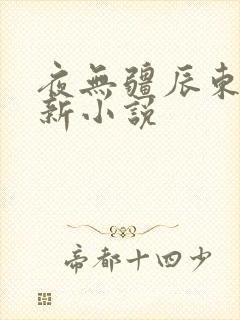 夜無疆辰東
新小說
帝都十四少